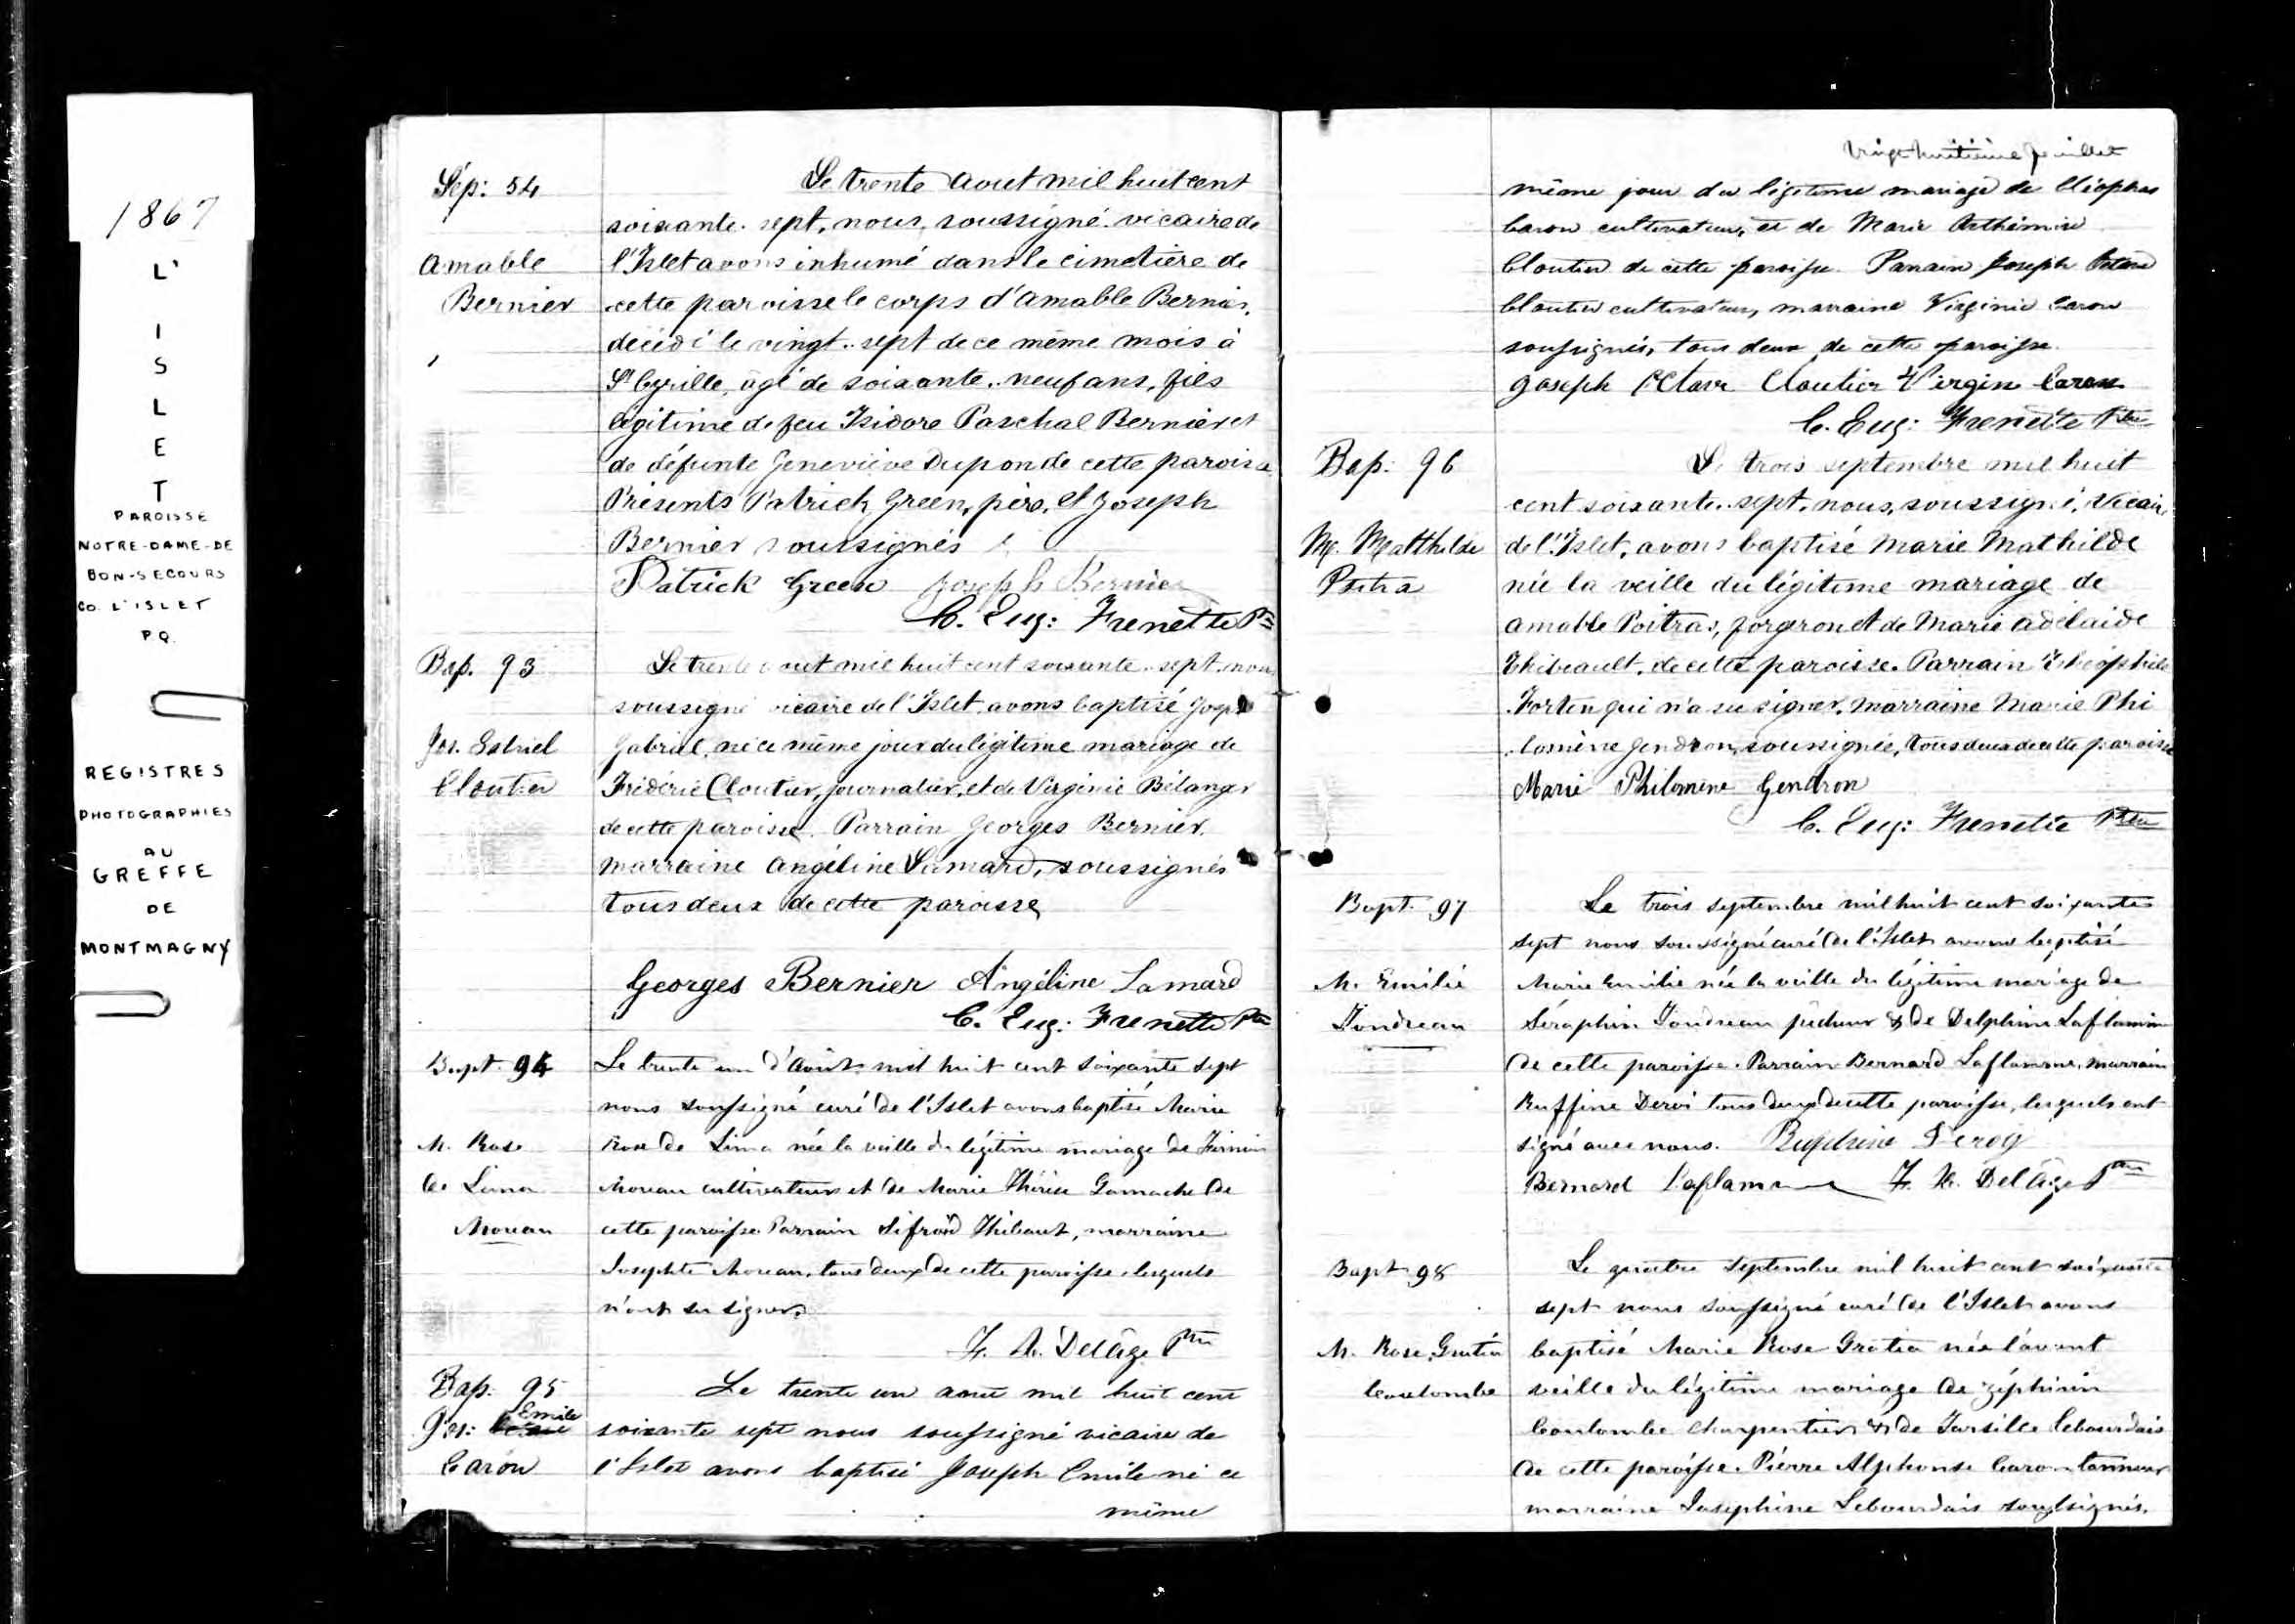 1867
L'
I
S
L
E
T
PAROISSE
NOTRE-DAME-DE
BON-SECOURS
CO. L'ISLET
P.Q.
REGISTRES
PHOTOGRAPHIES
AU
GREFFE
DE
MONTMAGNY
Sép: 54
Amable
Bernier
Le trente aout mil huit cent
soixante-sept, nous, soussigné vicaire de
l'Islet avons inhumé dans le cimetière de
cette paroisse le corps d'Amable Bernier,
décédé le vingt-sept de ce même mois à
St Cyrille, âgé de soixante-neuf ans, fils
légitime de feu Isidore Paschal Bernier et
de défunte Geneviève Dupon de cette paroisse
Présents Patrick Green, père, et Joseph
Bernier soussignés
Patrick Green Joseph Bernier
C. Eug: Frenette Ptre
Bap. 93
Jos. Gabriel
Cloutier
Le trente aout mil huit cent soixante-sept, nous
soussigné vicaire de l'Islet, avons baptisé Joseph
Gabriel, né ce même jour du légitime mariage de
Frédéric Cloutier, journalier, et de Virginie Bélanger
de cette paroisse. Parrain Georges Bernier,
marraine Angéline Lamard, soussignés
tous deux de cette paroisse
Georges Bernier Angéline Lamard
C. Eug: Frenette Ptre
Bapt. 94
M. Rose
de Lima
Moreau
Le trente un d'août mil huit cent soixante sept
nous soussigné curé de l'Islet avons baptisé Marie
Rose de Lima née la veille du légitime mariage de Firmin
Moreau cultivateur et de Marie Thérèse Gamache de
cette paroisse Parrain Sifroid Thibaut, marraine
Josephte Moreau, tous deux de cette paroisse lesquels
n'ont su signer.
F. X. Delâge Ptre
Bap. 95
Jos: Emile
Caron
Le trente un aout mil huit cent
soixante sept nous soussigné vicaire de
l'Islet avons baptisé Joseph Emile né ce
même
Vingt huitième feuillet
même jour du légitime mariage de Cléophas
Caron cultivateur, et de Marie Arthémise
Cloutier de cette paroisse. Parrain Joseph
Cloutier cultivateur, marraine Virginie Caron
soussignés, tous deux de cette paroisse.
Joseph Cloutier Virgin Caron
C. Eug: Frenette Ptre
Bap: 96
M. Matthilde
Le trois septembre mil huit
cent soixante-sept, nous, soussigné, Vicaire
de l'Islet, avons baptisé Marie Mathilde
née la veille du légitime mariage de
Amable Poitras, forgeron et de Marie Adélaïde
Thibeault, de cette paroisse. Parrain Théophile
Fortin qui n'a su signer, marraine Marie Phi
lomène Gendron, soussignée, tous deux de cette paroisse
Marie Philomène Gendron
C. Eug: Frenette Ptre
Bapt. 97
M. Emilie
Fondreau
Le trois septembre mil huit cent soixante
sept nous soussigné curé de l'Islet avons baptisé
Marie Emilie née la veille du légitime mariage de
Séraphin Fondreau pêcheur & de Delphine Laflamme
de cette paroisse. Parrain Bernard Laflamme, marraine
Ruffine Deroi tous deux de cette paroisse, lesquels ont
signé avec nous. Ruphine Deroy
Bernard Laflamme F. X. Delâge Ptre
Bapt 98
M. Rose Gratia
Coulombe
Le quatre Septembre mil huit cent soixante
sept nous soussigné curé de l'Islet avons
baptisé Marie Rose Gratia née l'avant
veille du légitime mariage de Zéphirin
Coulombe charpentier & de Tarsille Lebourdais
de cette paroisse. Pierre Alphonse Caron tanneur
marraine Josephine Lebourdais soussignés.